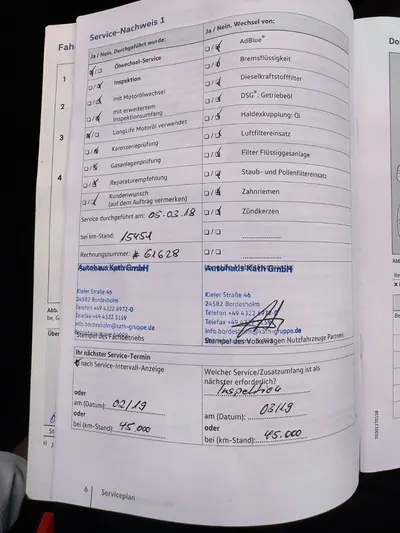 Service-Nachweis 1
Ja / Nein. Durchgeführt wurde:
Ölwechsel-Service
Inspektion
mit Motorölwechsel
mit erweitertem
Inspektionsumfang
LongLife Motoröl verwendet
Karosserieprüfung
Gasanlagenprüfung
Reparaturempfehlung
Kundenwunsch
(auf dem Auftrag vermerken)
Service durchgeführt am: 05.03.18
bei km-Stand: 15451
Rechnungsnummer: # 61628
Autohaus Kath GmbH
Kieler Straße 46
24582 Bordesholm
Telefon +49 4322 6972-0
Telefax +49 4322 5119
info.bordesholm@kath-gruppe.de
Stempel des Fachbetriebs
Ja / Nein. Wechsel von:
AdBlue®
Bremsflüssigkeit
Dieselkraftstofffilter
DSG®: Getriebeöl
Haldexkupplung: Öl
Luftfiltereinsatz
Filter Flüssiggasanlage
Staub- und Pollenfiltereinsatz
Zahnriemen
Zündkerzen
Autohaus Kath GmbH
Kieler Straße 46
24582 Bordesholm
Telefon +49 4322 6972-0
Telefax +49 4322 5119
info.bordesholm@kath-gruppe.de
Stempel des Volkswagen Nutzfahrzeuge Partners
Ihr nächster Service-Termin
nach Service-Intervall-Anzeige
oder
am (Datum): 02/19
oder
bei (km-Stand): 45.000
Welcher Service/Zusatzumfang ist als
nächster erforderlich?
Inspektion
am (Datum): 03/19
oder
bei (km-Stand): 45.000
6 Serviceplan
Fah
1
2
3
4
Abb.
Do